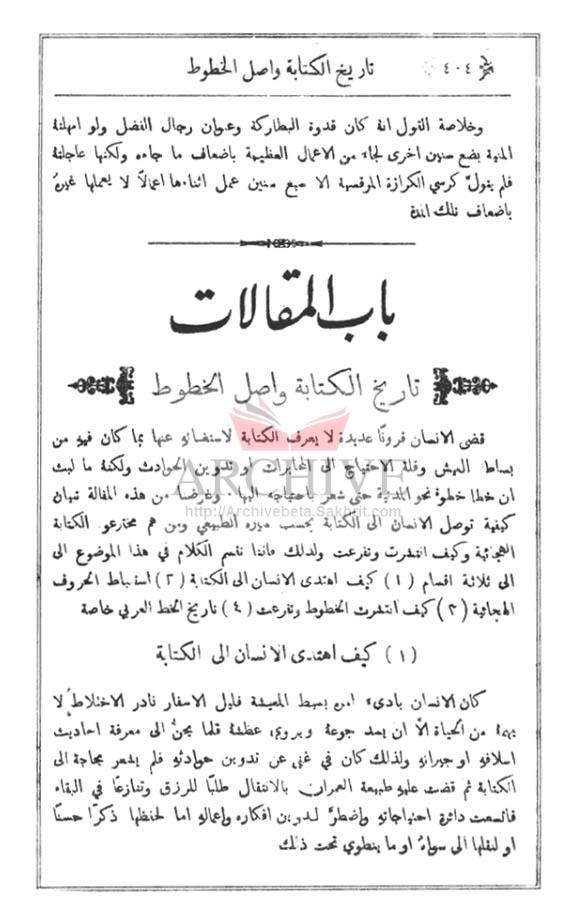 ٤٠٤ تاريخ الكتابة واصل الخطوط
وخلاصة القول انهُ كان قدوة البطاركة وعنوان رجال الفضل ولو امهلتهُ
المنية بضع سنين اخرى لجاء من الاعمال العظيمة باضعاف ما جاءه ولكنها عاجلتهُ
فلم يتولَّ كرسي الكرازة المرقسية الا سبع سنين عمل اثناءها اعمالاً لا يعملها غيرهُ
باضعاف تلك المدة
باب المقالات
تاريخ الكتابة واصل الخطوط
ARCHIVE
http://Archivebeta.Sakhrit.com
قضى الانسان قرونًا عديدة لا يعرف الكتابة لاستغنائهِ عنها بما كان فيهِ من
بساطة العيش وقلة الاحتياج الى المخابرات او تدوين الحوادث ولكنهُ ما لبث
ان خطا خطوة نحو المدنية حتى شعر باحتياجهِ اليها . وغرضنا من هذه المقالة تبيان
كيفية توصل الانسان الى الكتابة بحسب ميله الطبيعي ومن هم مخترعو الكتابة
الهجائية وكيف انتشرت وتفرعت ولذلك فاننا نقسم الكلام في هذا الموضوع الى
الى ثلاثة اقسام (١) كيف اهتدى الانسان الى الكتابة (٢) استنباط الحروف
الهجائية (٣) كيف انتشرت الخطوط وتفرعت (٤) تاريخ الخط العربي خاصة
(١) كيف اهتدى الانسان الى الكتابة
كان الانسان بادىء امره بسيط المعيشة قليل الاسفار نادر الاختلاط لا
يهمهُ من الحياة الاَّ ان يسد جوعهُ ويروي عطشهُ قلما يحنُّ الى معرفة احاديث
اسلافهِ او جيرانهِ ولذلك كان في غنى عن تدوين حوادثهِ فلم يشعر بحاجة الى
الكتابة ثم قضت عليهِ طبيعة العمران بالانتقال طلبًا للرزق وتنازعًا في البقاء
فاتسعت دائرة احتياجاتهِ واضطرَّ لتدوين افكاره واعمالهِ اما لحفظها ذكرًا حسنًا
او لنقلها الى سواهُ او ما ينطوي تحت ذلك